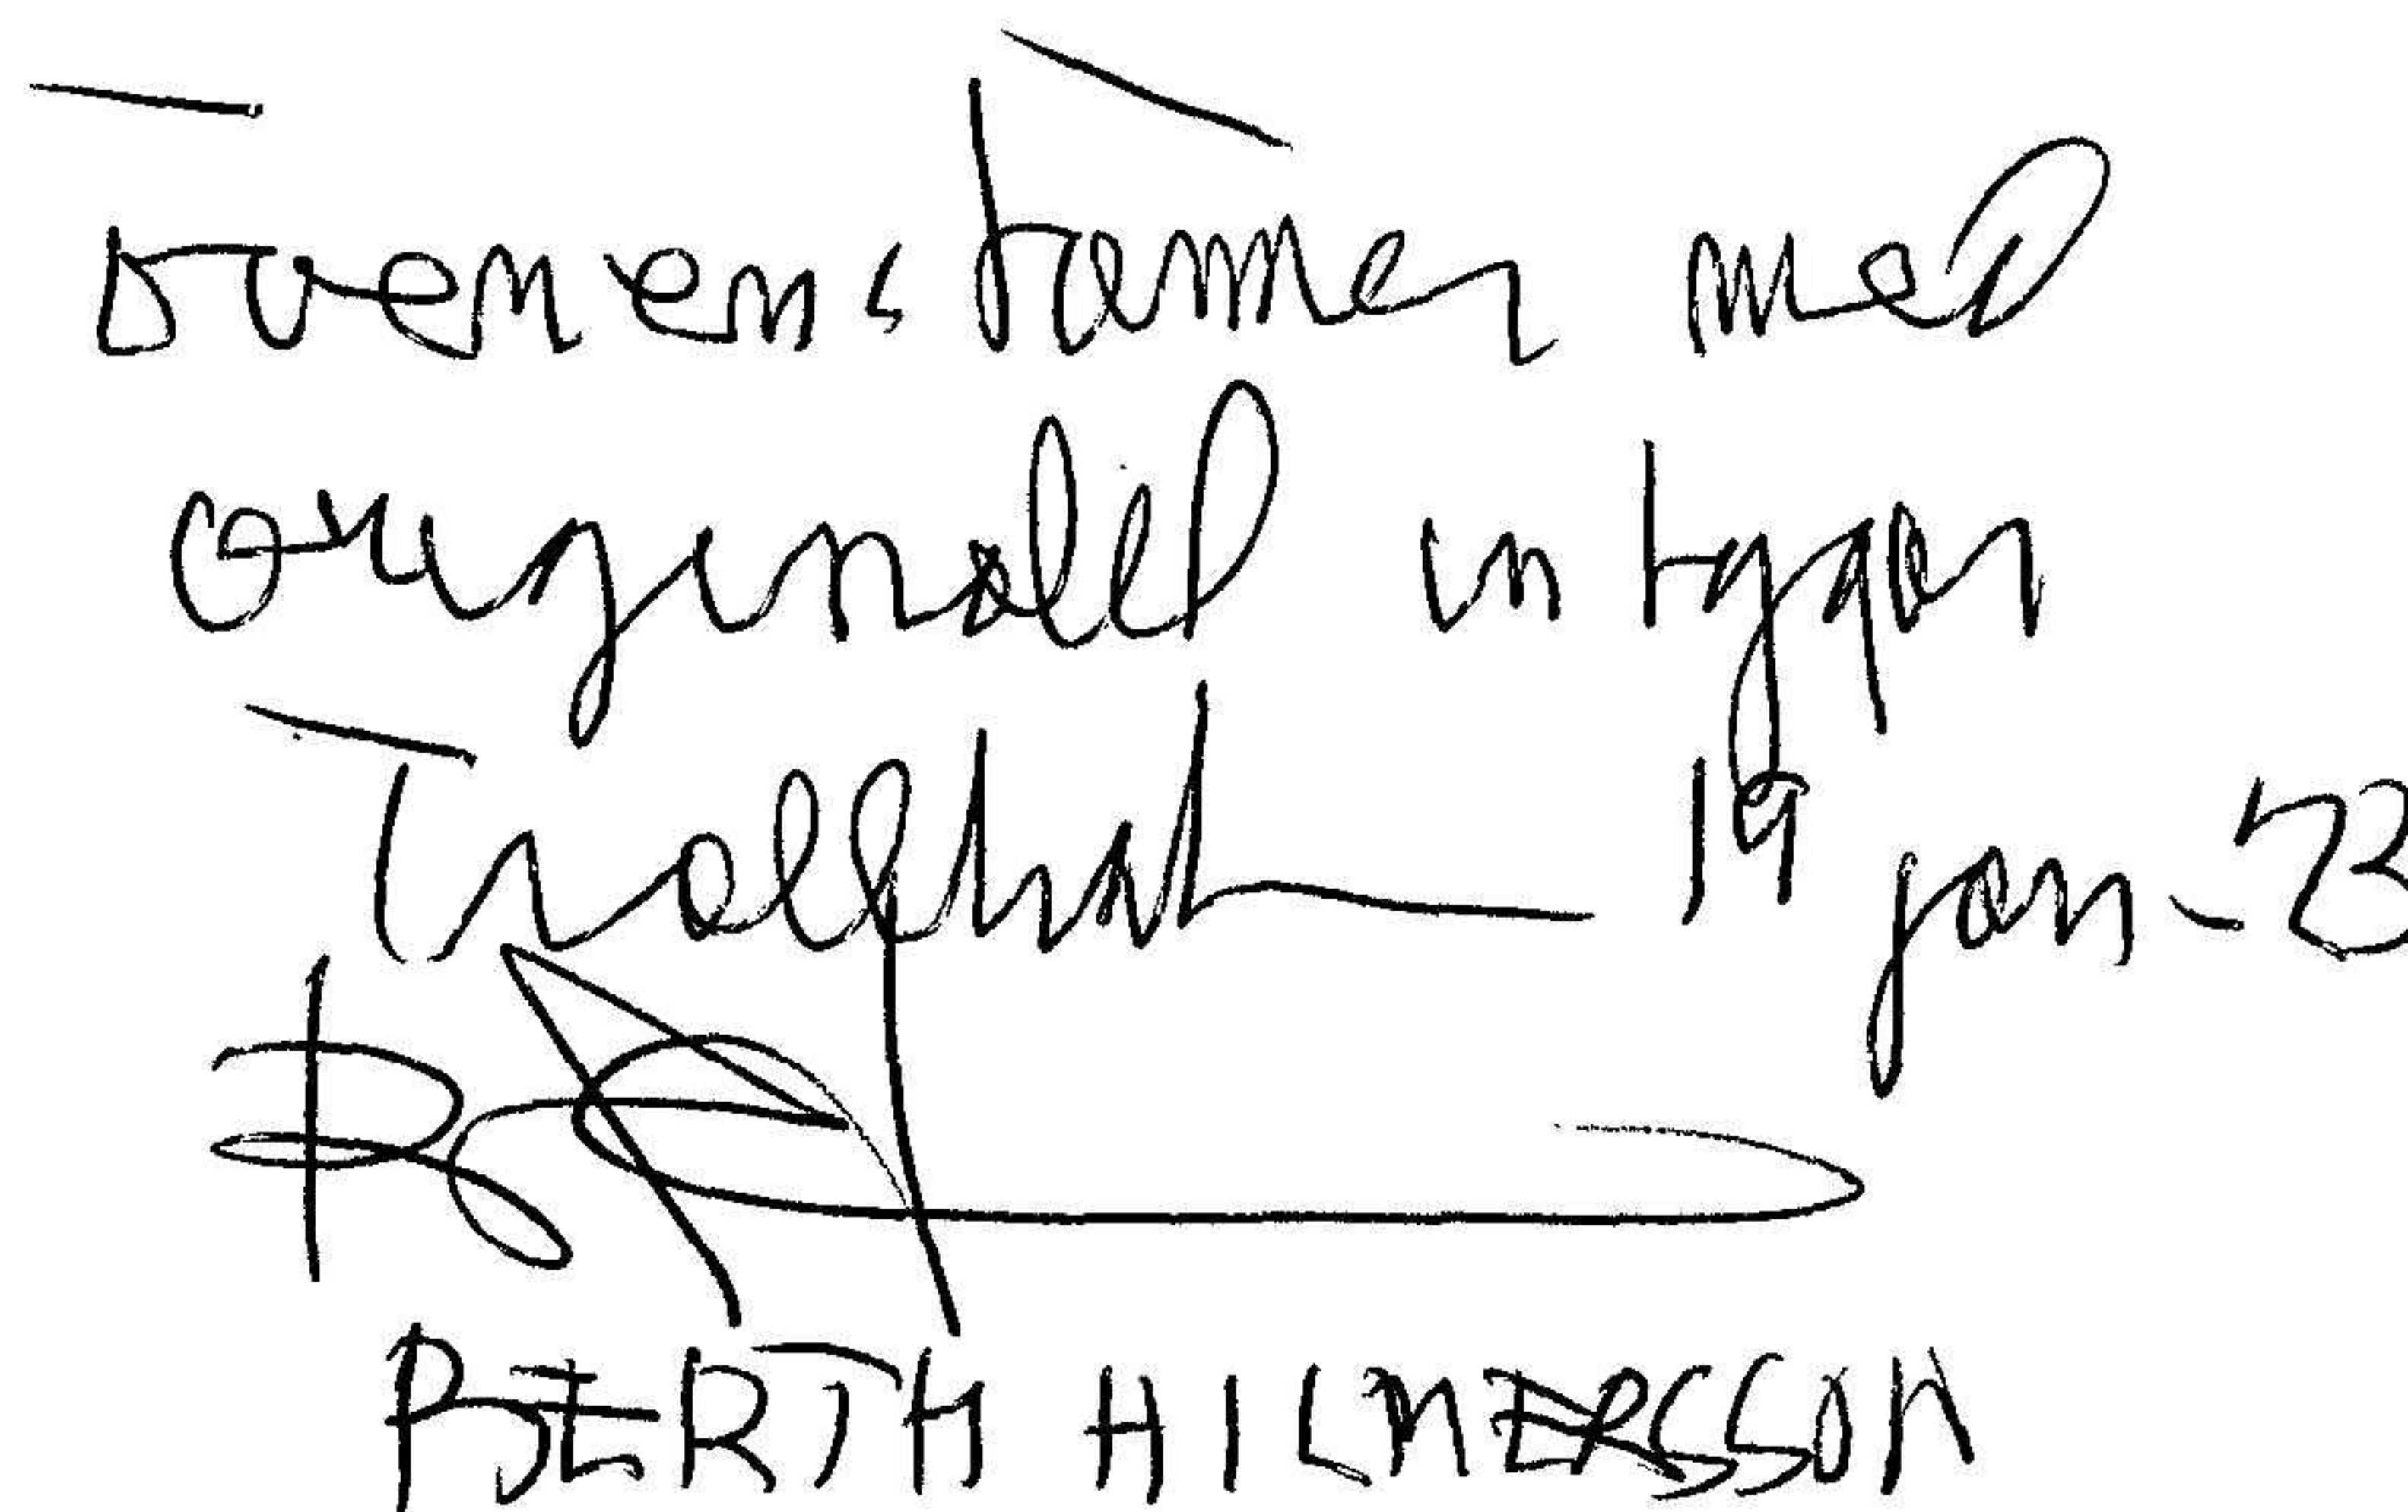 överensstämmer med
originalet intygar
Trollhät 19 jan -23
BERTH HILMERSSON